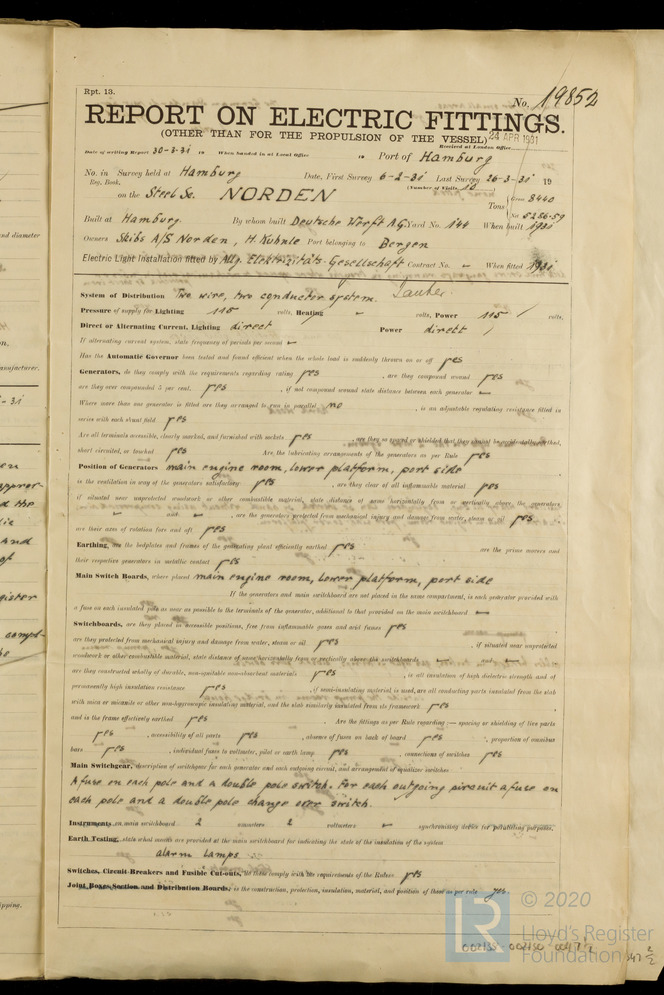 Rpt. 13.
No. 19852
REPORT ON ELECTRIC FITTINGS.
(OTHER THAN FOR THE PROPULSION OF THE VESSEL)
24 APR 1931
Received at London Office
Date of writing Report 30-3-31 19 When handed in at Local Office 19 Port of Hamburg
No. in Survey held at Hamburg Date, First Survey 6-2-31 Last Survey 26-3-31 19
Reg. Book. (Number of Visits 10)
on the Steel Sc. NORDEN Tons Gross 8440
Net 5256.59
Built at Hamburg By whom built Deutsche Werft A.G. Yard No. 144 When built 1931
Owners Skibs A/S Norden, H. Kuhnle Port belonging to Bergen
Electric Light Installation fitted by Allg. Elektrizitäts-Gesellschaft Contract No. - When fitted 1931
System of Distribution Two wire, two conductor system.
Pressure of supply for Lighting 115 volts, Heating - volts, Power 115 volts,
Direct or Alternating Current, Lighting direct Power direct
If alternating current system, state frequency of periods per second -
Has the Automatic Governor been tested and found efficient when the whole load is suddenly thrown on or off yes
Generators, do they comply with the requirements regarding rating yes, are they compound wound yes
are they over compounded 5 per cent. yes, if not compound wound state distance between each generator -
Where more than one generator is fitted are they arranged to run in parallel no, is an adjustable regulating resistance fitted in
series with each shunt field yes
Are all terminals accessible, clearly marked, and furnished with sockets yes, are they so spaced or shielded that they cannot be accidentally earthed,
short circuited, or touched yes Are the lubricating arrangements of the generators as per Rule yes
Position of Generators main engine room, lower platform, port side
is the ventilation in way of the generators satisfactory yes, are they clear of all inflammable material yes
if situated near unprotected woodwork or other combustible material, state distance of same horizontally from or vertically above the generators
- and -, are the generators protected from mechanical injury and damage from water, steam or oil yes
are their axes of rotation fore and aft yes
Earthing, are the bedplates and frames of the generating plant efficiently earthed yes are the prime movers and
their respective generators in metallic contact yes
Main Switch Boards, where placed main engine room, lower platform, port side
If the generators and main switchboard are not placed in the same compartment, is each generator provided with
a fuse on each insulated pole as near as possible to the terminals of the generator, additional to that provided on the main switchboard -
Switchboards, are they placed in accessible positions, free from inflammable gases and acid fumes yes
are they protected from mechanical injury and damage from water, steam or oil yes, if situated near unprotected
woodwork or other combustible material, state distance of same horizontally from or vertically above the switchboards - and -
are they constructed wholly of durable, non-ignitable non-absorbent materials yes, is all insulation of high dielectric strength and of
permanently high insulation resistance yes, if semi-insulating material is used, are all conducting parts insulated from the slab
with mica or micanite or other non-hygroscopic insulating material, and the slab similarly insulated from its framework yes
and is the frame effectively earthed yes Are the fittings as per Rule regarding:— spacing or shielding of live parts
yes, accessibility of all parts yes, absence of fuses on back of board yes, proportion of omnibus
bars yes, individual fuses to voltmeter, pilot or earth lamp yes, connections of switches yes
Main Switchgear, description of switchgear for each generator and each outgoing circuit, and arrangement of equalizer switches
A fuse on each pole and a double pole switch. For each outgoing circuit a fuse on
each pole and a double pole change over switch.
Instruments, on main switchboard 2 ammeters 2 voltmeters - synchronising device for paralleling purposes,
Earth Testing, state what means are provided at the main switchboard for indicating the state of the insulation of the system
alarm lamps
Switches, Circuit-Breakers and Fusible Cut-outs, do these comply with the requirements of the Rules yes
Joint Boxes Section and Distribution Boards, is the construction, protection, insulation, material, and position of these as per rule yes.
© 2020
LR
Lloyd's Register
Foundation